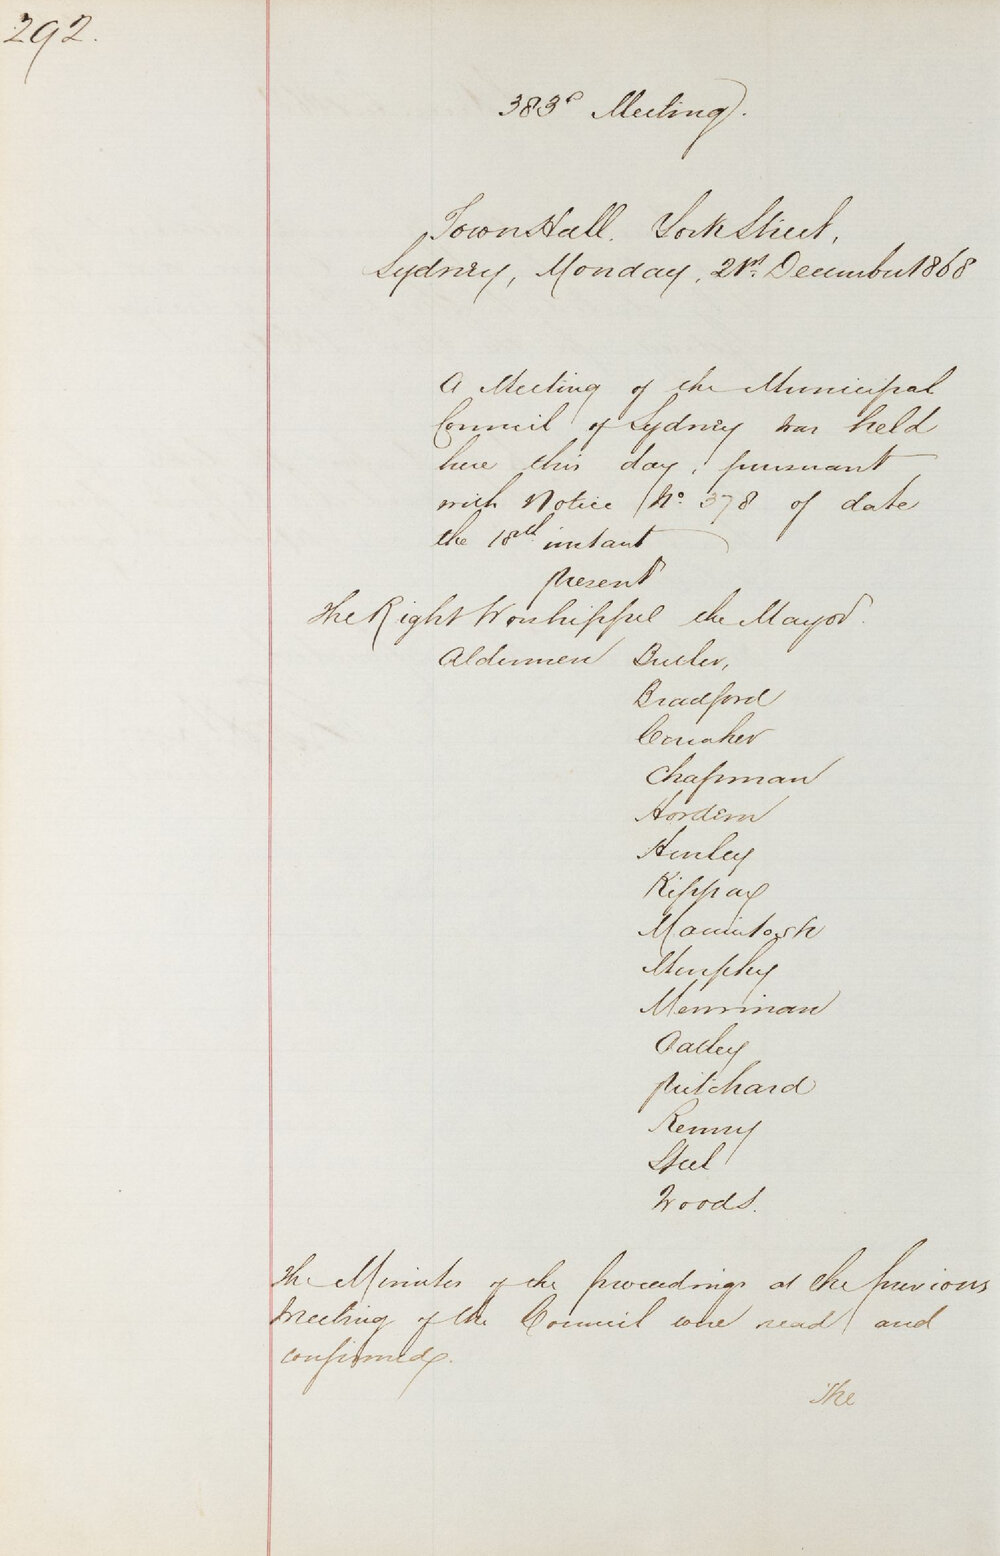 292.
383d Meeting.
Town Hall. York Street,
Sydney, Monday, 21st. December 1868
A Meeting of the Municipal
Council of Sydney was held
here this day, pursuant
with Notice No. 378 of date
the 18th instant
present
The Right Worshipful the Mayor.
Aldermen Butler,
Bradford
Conaher
Chapman
Hordern
Hurley
Kippax
Macintosh
Murphy
Merriman
Oatley
Pritchard
Renny
Steel
Woods.
The Minutes of the proceedings at the previous
meeting of the Council were read and
confirmed.
The